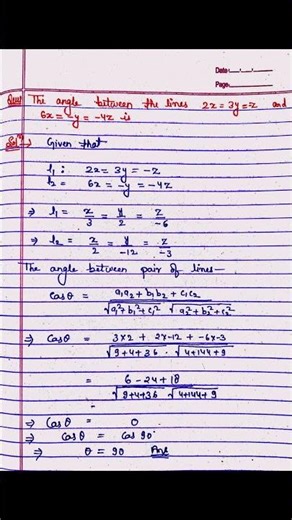 Date:-__.__.__
Page:
Ques) The angle between the lines 2x = 3y = -z and
6x = -y = -4z is
Sol^n) → Given that
l₁ : 2x = 3y = -z
l₂ = 6x = -y = -4z
⇒ l₁ = x/3 = y/2 = z/-6
⇒ l₂ = x/2 = y/-12 = z/-3
The angle between pair of lines—
Cosθ = a₁a₂ + b₁b₂ + c₁c₂ / √a₁²+b₁²+c₁² √a₂²+b₂²+c₂²
⇒ Cosθ = 3x2 + 2x-12 + -6x-3 / √9+4+36 . √4+144+9
= 6 - 24 + 18 / √9+4+36 √4+144+9
⇒ Cosθ = 0
⇒ Cosθ = Cos 90°
⇒ θ = 90 Ans